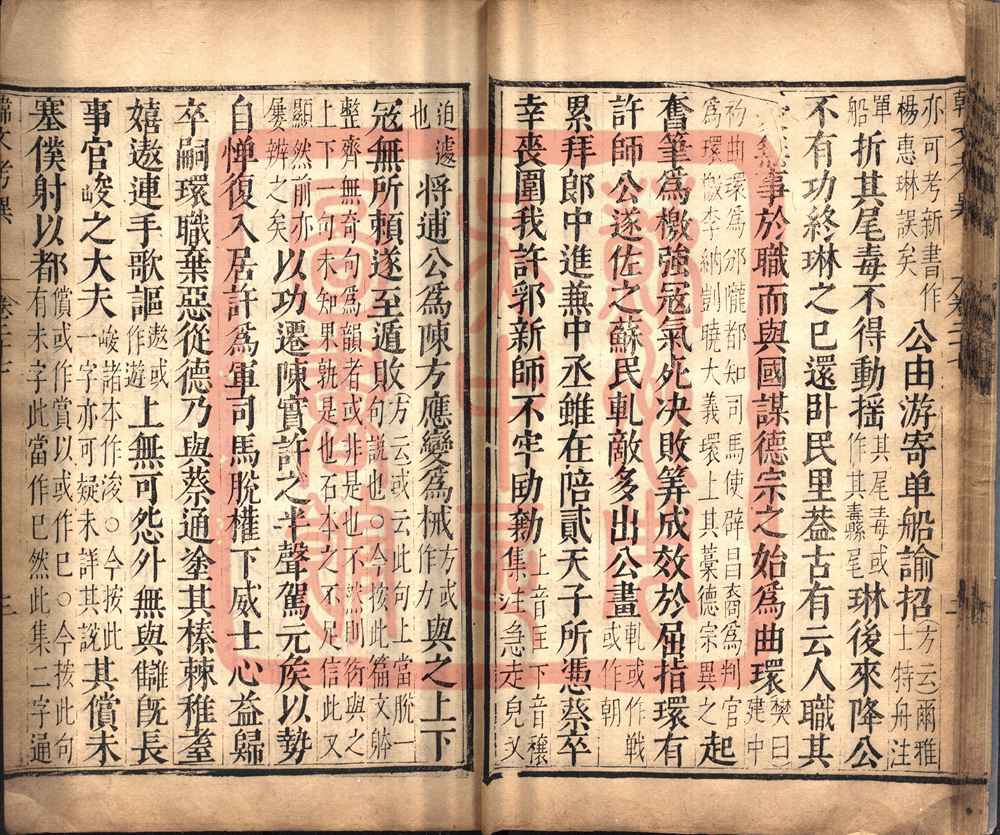 亦可考新書作
楊惠琳誤矣
公由游寄单船諭招
方云爾雅
士特舟注
單
船
折其尾毒不得動揺
其尾毒或
作其蠡尾
琳後來降公
不有功終琳之已還卧民里葢古有云人職其
無事於職而與國謀德宗之始爲曲環
樊曰
建中
初曲環爲邠隴都知司馬使辟昌裔爲判官
爲環檄李納剴曉大義環上其藁德宗異之
起
奮筆爲檄強冦氣死决敗筭成效於屈指環有
許師公遂佐之蘇民軋敵多出公畫
軋或作戰
或作朝
累拜郎中進兼中丞雖在陪貳天子所憑蔡卒
幸喪圍我許郛新師不牢劻勷
上音匡下音穰
集注急走皃又
迫遽
也
將逋公爲陳方應變爲械
方或
作力
與之上下
冦無所頼遂至遁敗
方云或云此句上當脫一
句説也○今按此篇文躰
整齊無奇句爲韻者或非是也不然則衍與之
上下一句未知果孰是也石本之不足信此又
顯然前亦
屢辨之矣
以功遷陳實許之半聲駕元矦以勢
自憚復入居許爲軍司馬脫權下威士心益歸
卒嗣環職棄惡從德乃與蔡通塗其榛棘稚耋
嬉遨連手歌謳
遨或
作遊
上無可怨外無與讎旣長
事官峻之大夫
峻諸本作浚○今按此
一字亦可疑未詳其說
其償未
塞僕射以都
償或作賞以或作巳○今按此句
有未字此當作巳然此集二字通
韓文考異
卷二十七